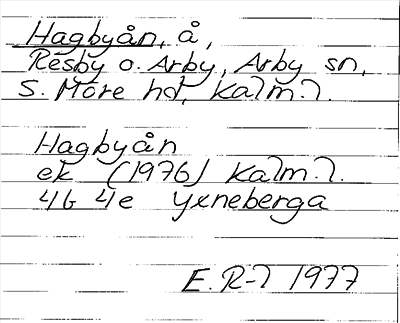 Hagbyån, å,
Resby o. Arby, Arby sn,
S. Möre hd, Kalm. l.
Hagbyån
ek (1976) Kalm. l.
4G 4e Yxneberga
E. R-l 1977